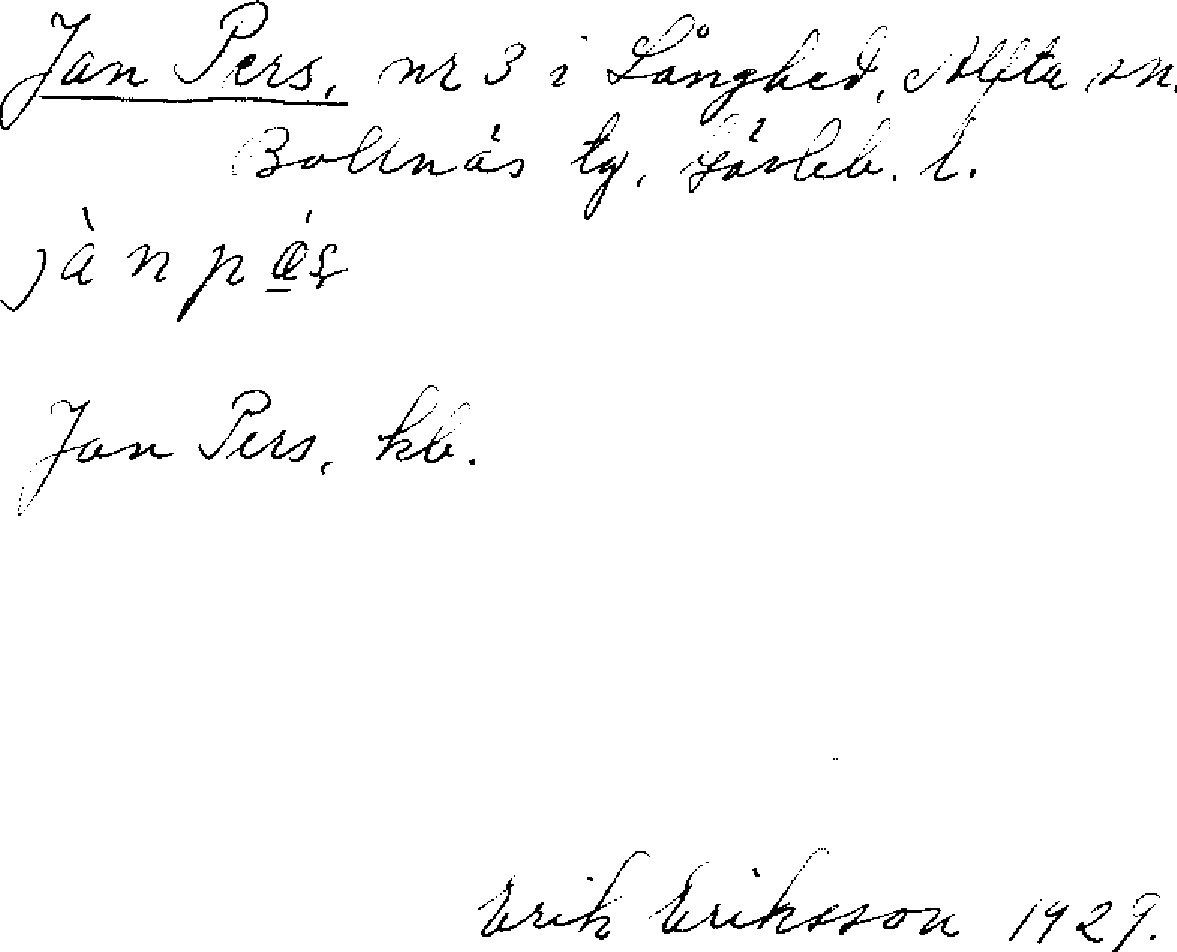 Jan Pers, nr 3 i Långhed, Alfta sn.
Bollnäs tg, Gävleb. l.
jàn pǽṣ
Jan Pers, kb.
Erik Eriksson 1929.